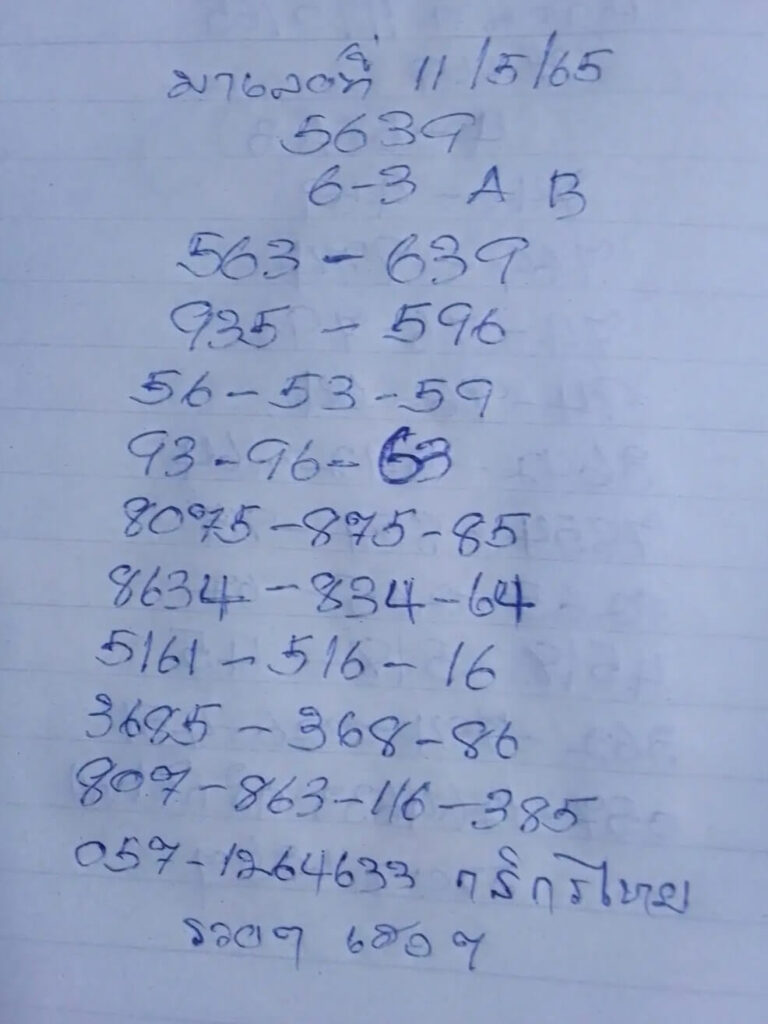 มาเลย์ที่ 11/5/65
5639
6-3 A B
563 - 639
935 - 596
56 - 53 - 59
93 - 96 - 63
8075 - 875 - 85
8634 - 834 - 64
5161 - 516 - 16
3685 - 368 - 86
807 - 863 - 116 - 385
057 - 1264633 กสิกรไทย